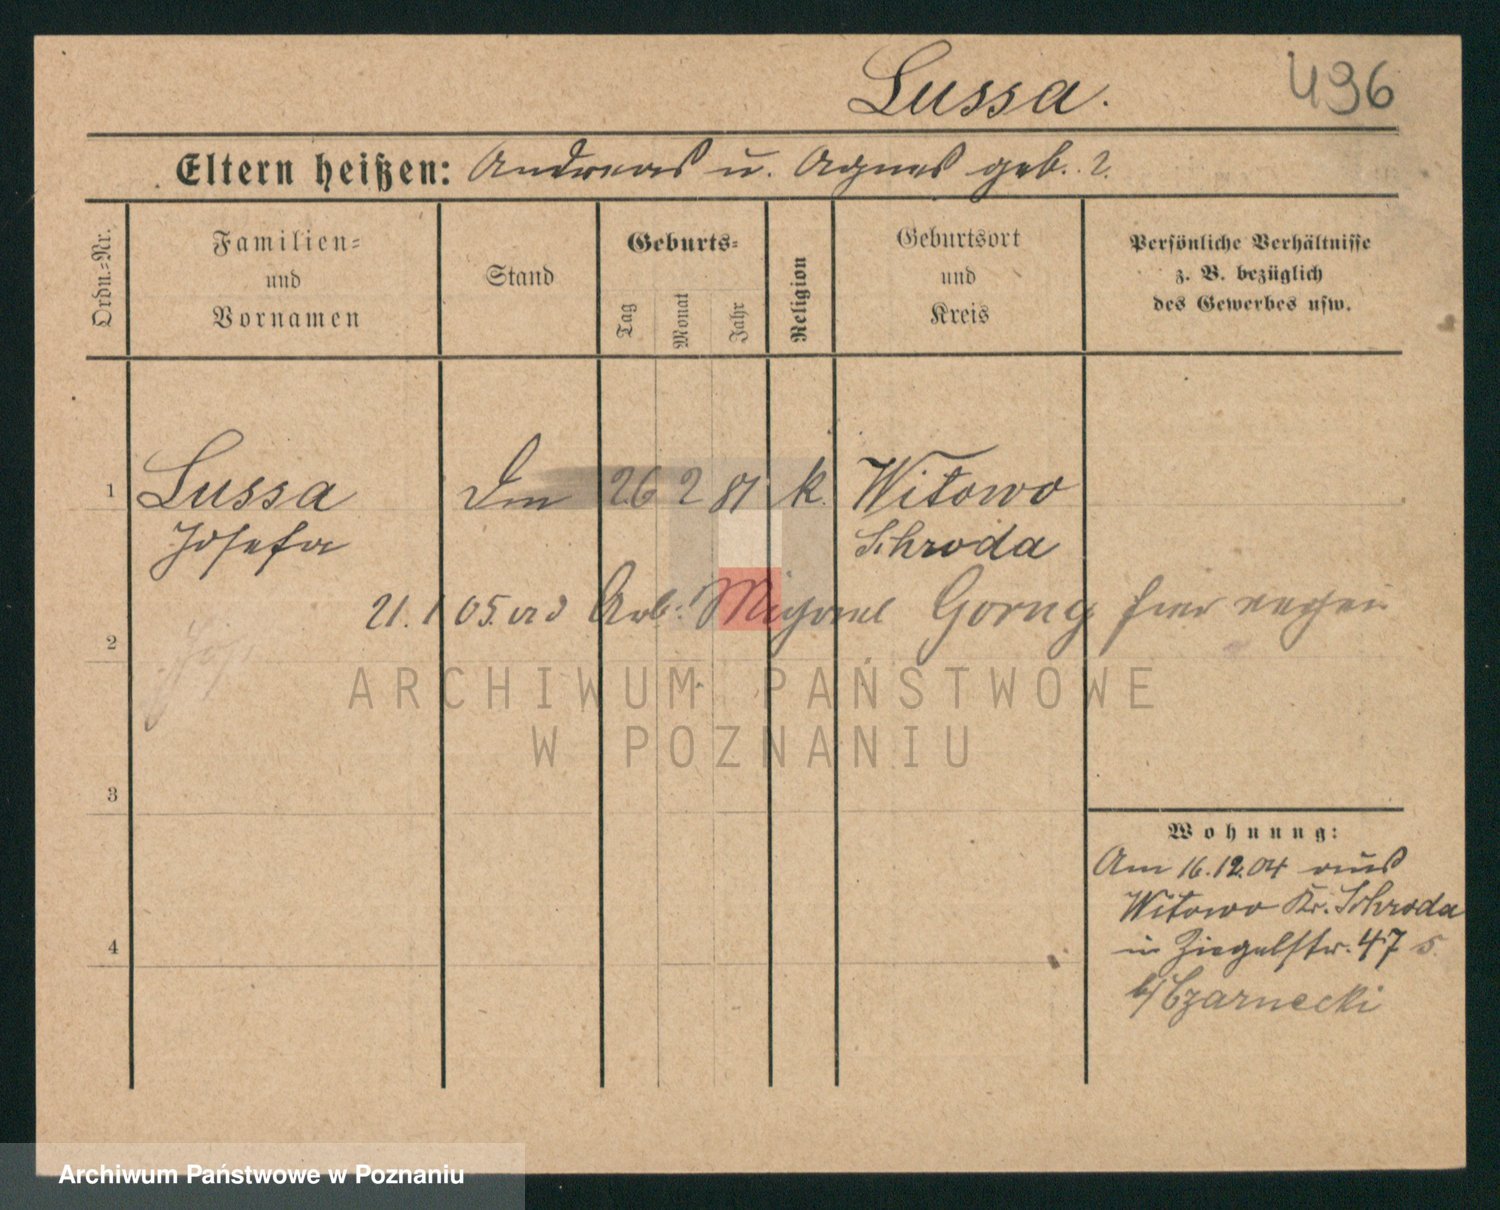 Lussa. 496
Eltern heißen: Andreas u. Agnes geb. ?.
Ordn.-Nr.
Familien-
und
Vornamen
Stand
Geburts-
Tag
Monat
Jahr
Religion
Geburtsort
und
Kreis
Persönliche Verhältnisse
z. B. bezüglich
des Gewerbes usw.
1 Lussa 26 2 81 k. Witowo
Josefa Schroda
21.1.05. Arb. Gorny
2
3
4
Wohnung:
Am 16.12.04 aus
Witowo Kr. Schroda
in Ziegelstr. 47
b/ Czarnecki
ARCHIWUM PAŃSTWOWE
W POZNANIU
Archiwum Państwowe w Poznaniu